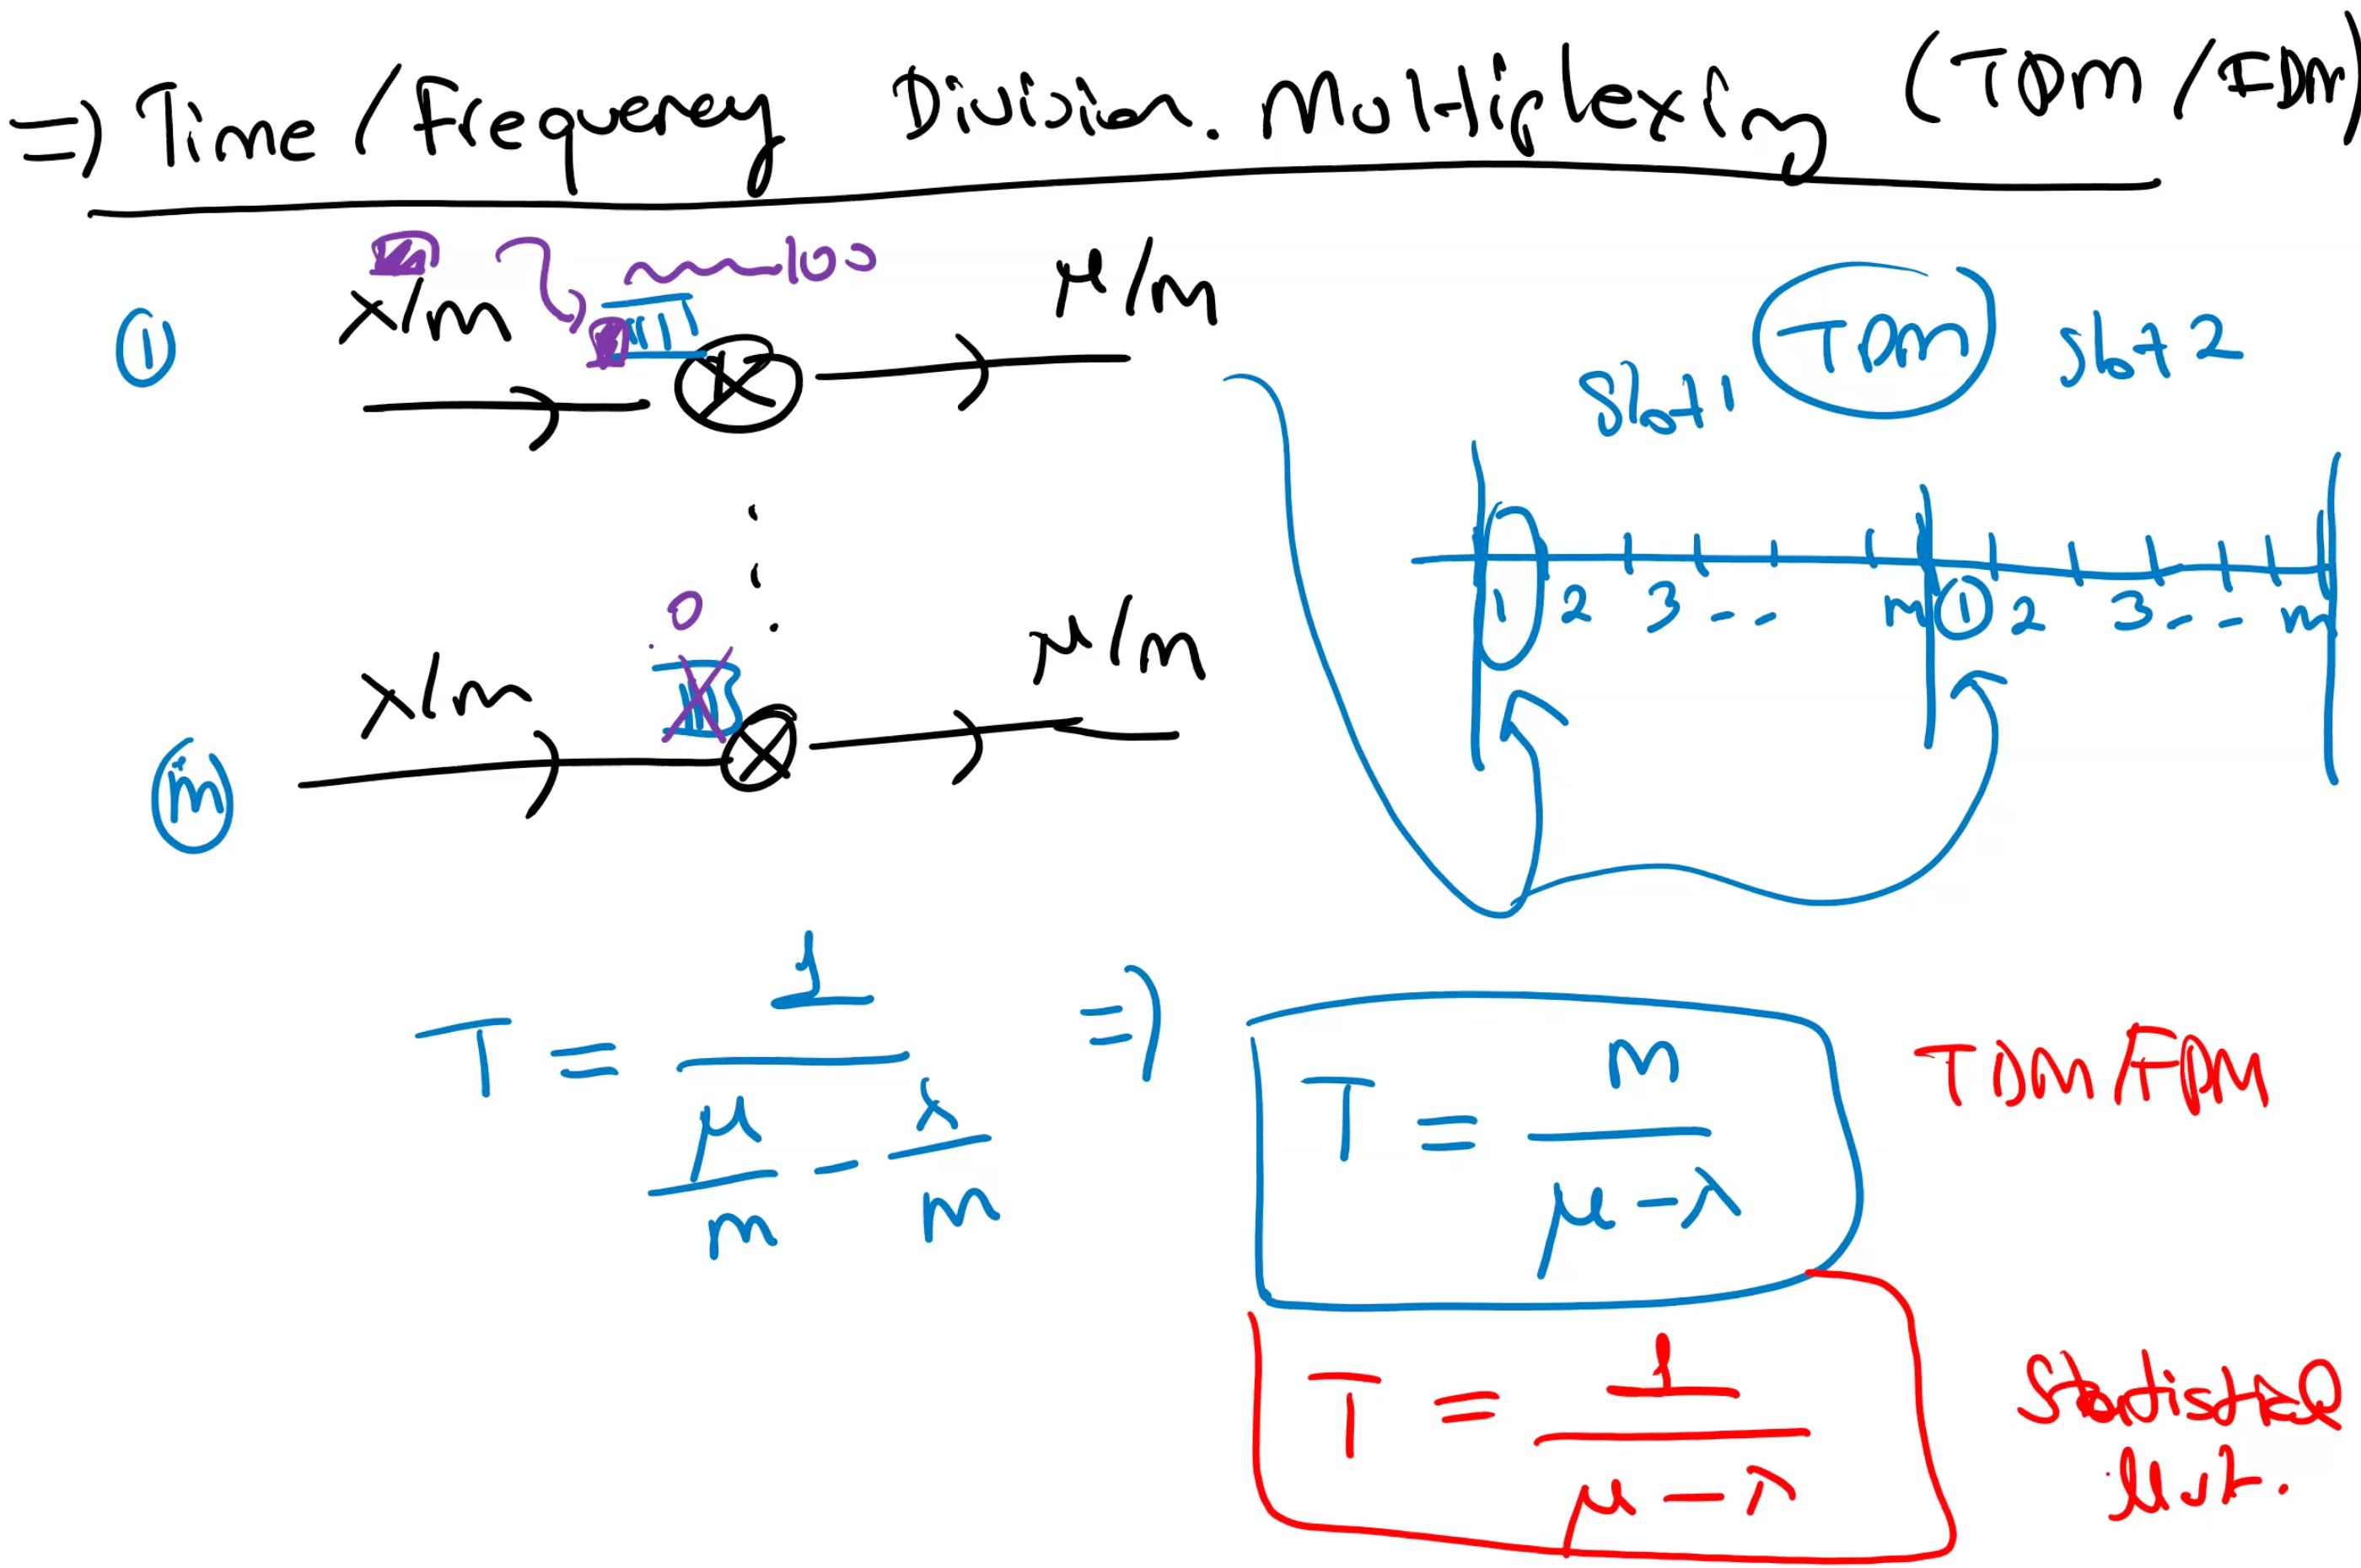 => Time/Frequency Division Multiplexing (TDM/FDM)
100
λ/m
μ/m
①
TDM
Slot 1
Slot 2
1 2 3 -- m ① 2 3 -- m
0
λ/m
μ/m
ⓜ
T = 1 / (μ/m - λ/m) =>
T = m / (μ - λ)
TDM/FDM
T = 1 / (μ - λ)
Statistical
Mux.